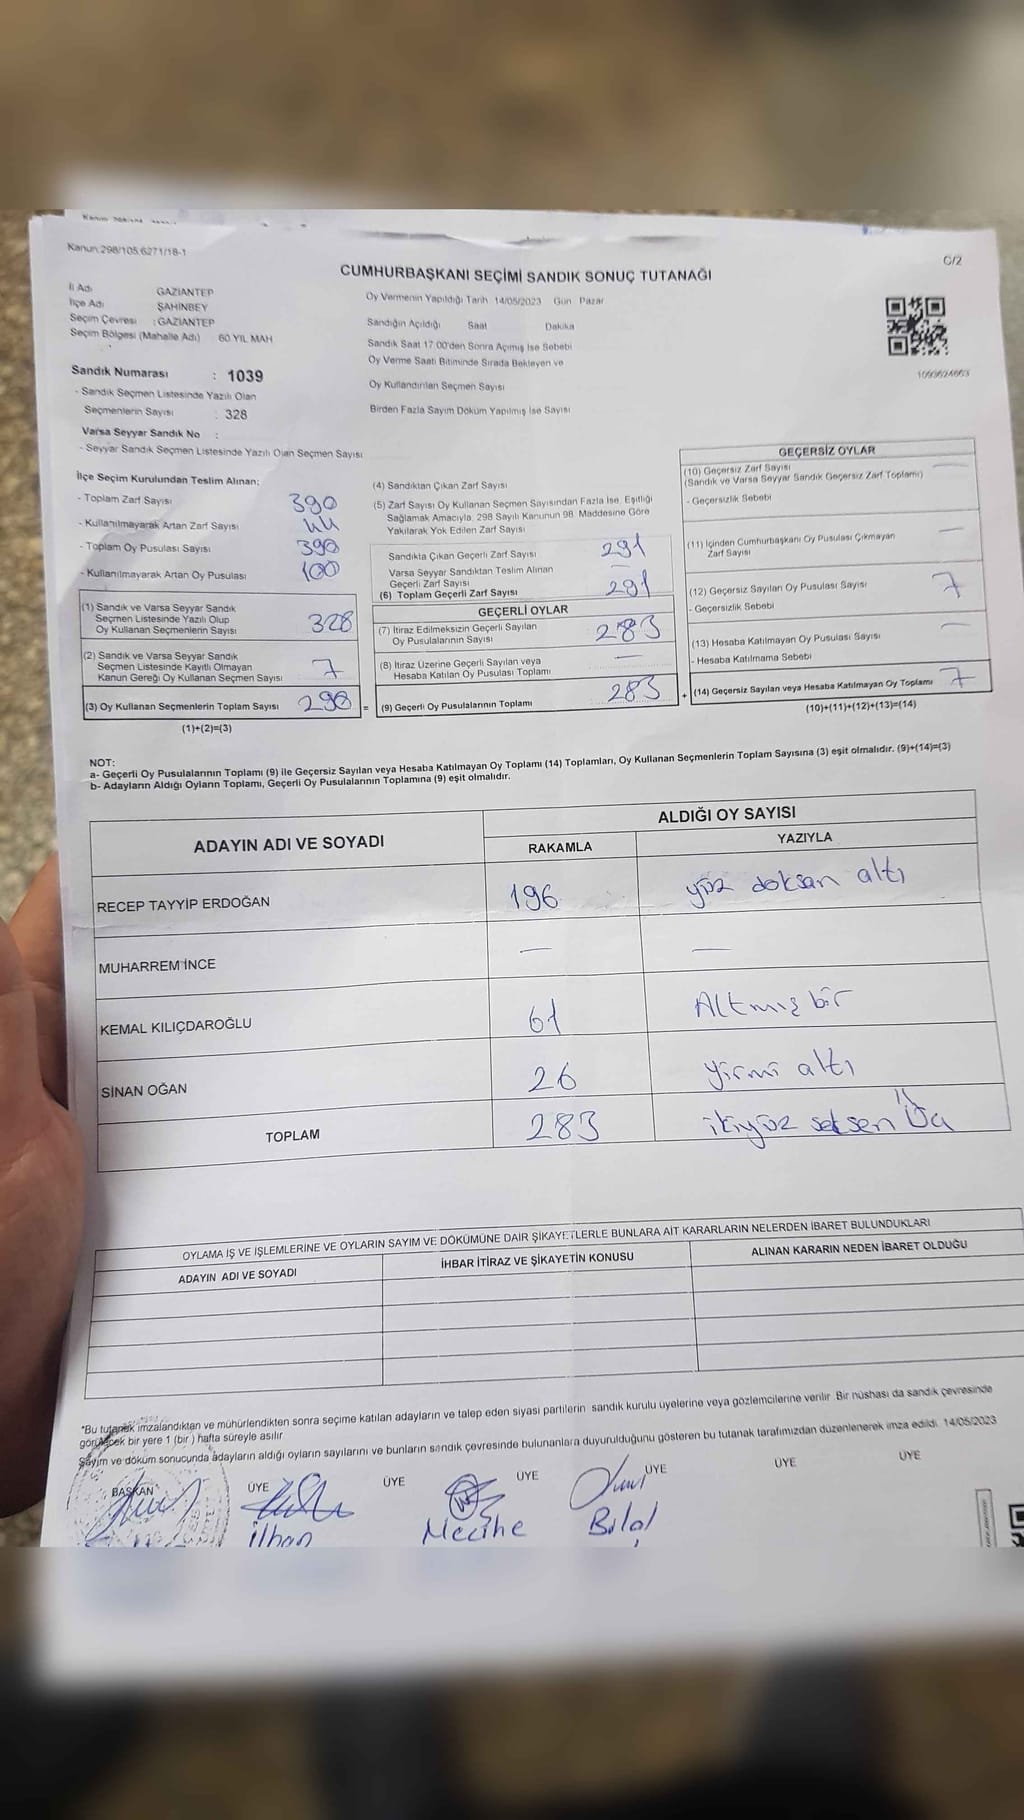 Kanun:298/105,6271/18-1
C/2
CUMHURBAŞKANI SEÇİMİ SANDIK SONUÇ TUTANAĞI
İl Adı GAZİANTEP
İlçe Adı ŞAHİNBEY
Seçim Çevresi : GAZİANTEP
Seçim Bölgesi (Mahalle Adı) 60 YIL MAH
Sandık Numarası : 1039
- Sandık Seçmen Listesinde Yazılı Olan
Seçmenlerin Sayısı : 328
Varsa Seyyar Sandık No :
- Seyyar Sandık Seçmen Listesinde Yazılı Olan Seçmen Sayısı
Oy Vermenin Yapıldığı Tarih 14/05/2023 Gün Pazar
Sandığın Açıldığı Saat Dakika
Sandık Saat 17.00'den Sonra Açımış İse Sebebi
Oy Verme Saati Bitiminde Sırada Bekleyen ve
Oy Kullandırılan Seçmen Sayısı
Birden Fazla Sayım Döküm Yapılmış İse Sayısı
1093624663
İlçe Seçim Kurulundan Teslim Alınan:
- Toplam Zarf Sayısı 390
- Kullanılmayarak Artan Zarf Sayısı 44
- Toplam Oy Pusulası Sayısı 390
- Kullanılmayarak Artan Oy Pusulası 100
(1) Sandık ve Varsa Seyyar Sandık
Seçmen Listesinde Yazılı Olup
Oy Kullanan Seçmenlerin Sayısı 328
(2) Sandık ve Varsa Seyyar Sandık
Seçmen Listesinde Kayıtlı Olmayan
Kanun Gereği Oy Kullanan Seçmen Sayısı 7
(3) Oy Kullanan Seçmenlerin Toplam Sayısı 290 =
(1)+(2)=(3)
(4) Sandıktan Çıkan Zarf Sayısı
(5) Zarf Sayısı Oy Kullanan Seçmen Sayısından Fazla İse, Eşitliği
Sağlamak Amacıyla; 298 Sayılı Kanunun 98. Maddesine Göre
Yakılarak Yok Edilen Zarf Sayısı
Sandıkta Çıkan Geçerli Zarf Sayısı 291
Varsa Seyyar Sandıktan Teslim Alınan
Geçerli Zarf Sayısı —
(6) Toplam Geçerli Zarf Sayısı 291
GEÇERLİ OYLAR
(7) İtiraz Edilmeksizin Geçerli Sayılan
Oy Pusulalarının Sayısı 283
(8) İtiraz Üzerine Geçerli Sayılan veya
Hesaba Katılan Oy Pusulası Toplamı —
(9) Geçerli Oy Pusulalarının Toplamı 283 +
GEÇERSİZ OYLAR
(10) Geçersiz Zarf Sayısı —
(Sandık ve Varsa Seyyar Sandık Geçersiz Zarf Toplamı)
- Geçersizlik Sebebi
(11) İçinden Cumhurbaşkanı Oy Pusulası Çıkmayan —
Zarf Sayısı
(12) Geçersiz Sayılan Oy Pusulası Sayısı 7
- Geçersizlik Sebebi
(13) Hesaba Katılmayan Oy Pusulası Sayısı —
- Hesaba Katılmama Sebebi
(14) Geçersiz Sayılan veya Hesaba Katılmayan Oy Toplamı 7
(10)+(11)+(12)+(13)=(14)
NOT:
a- Geçerli Oy Pusulalarının Toplamı (9) ile Geçersiz Sayılan veya Hesaba Katılmayan Oy Toplamı (14) Toplamları, Oy Kullanan Seçmenlerin Toplam Sayısına (3) eşit olmalıdır. (9)+(14)=(3)
b- Adayların Aldığı Oyların Toplamı, Geçerli Oy Pusulalarının Toplamına (9) eşit olmalıdır.
ADAYIN ADI VE SOYADI ALDIĞI OY SAYISI
RAKAMLA YAZIYLA
RECEP TAYYİP ERDOĞAN 196 yüz doksan altı
MUHARREM İNCE — —
KEMAL KILIÇDAROĞLU 61 Altmış bir
SİNAN OĞAN 26 yirmi altı
TOPLAM 283 ikiyüz seksen üç
OYLAMA İŞ VE İŞLEMLERİNE VE OYLARIN SAYIM VE DÖKÜMÜNE DAİR ŞİKAYETLERLE BUNLARA AİT KARARLARIN NELERDEN İBARET BULUNDUKLARI
ADAYIN ADI VE SOYADI İHBAR İTİRAZ VE ŞİKAYETİN KONUSU ALINAN KARARIN NEDEN İBARET OLDUĞU
*Bu tutanak imzalandıktan ve mühürlendikten sonra seçime katılan adayların ve talep eden siyasi partilerin sandık kurulu üyelerine veya gözlemcilerine verilir. Bir nüshası da sandık çevresinde
görülecek bir yere 1 (bir) hafta süreyle asılır.
Sayım ve döküm sonucunda adayların aldığı oyların sayılarını ve bunların sandık çevresinde bulunanlara duyurulduğunu gösteren bu tutanak tarafımızdan düzenlenerek imza edildi. 14/05/2023
BAŞKAN ÜYE ÜYE ÜYE ÜYE ÜYE ÜYE
İlhan Bilal